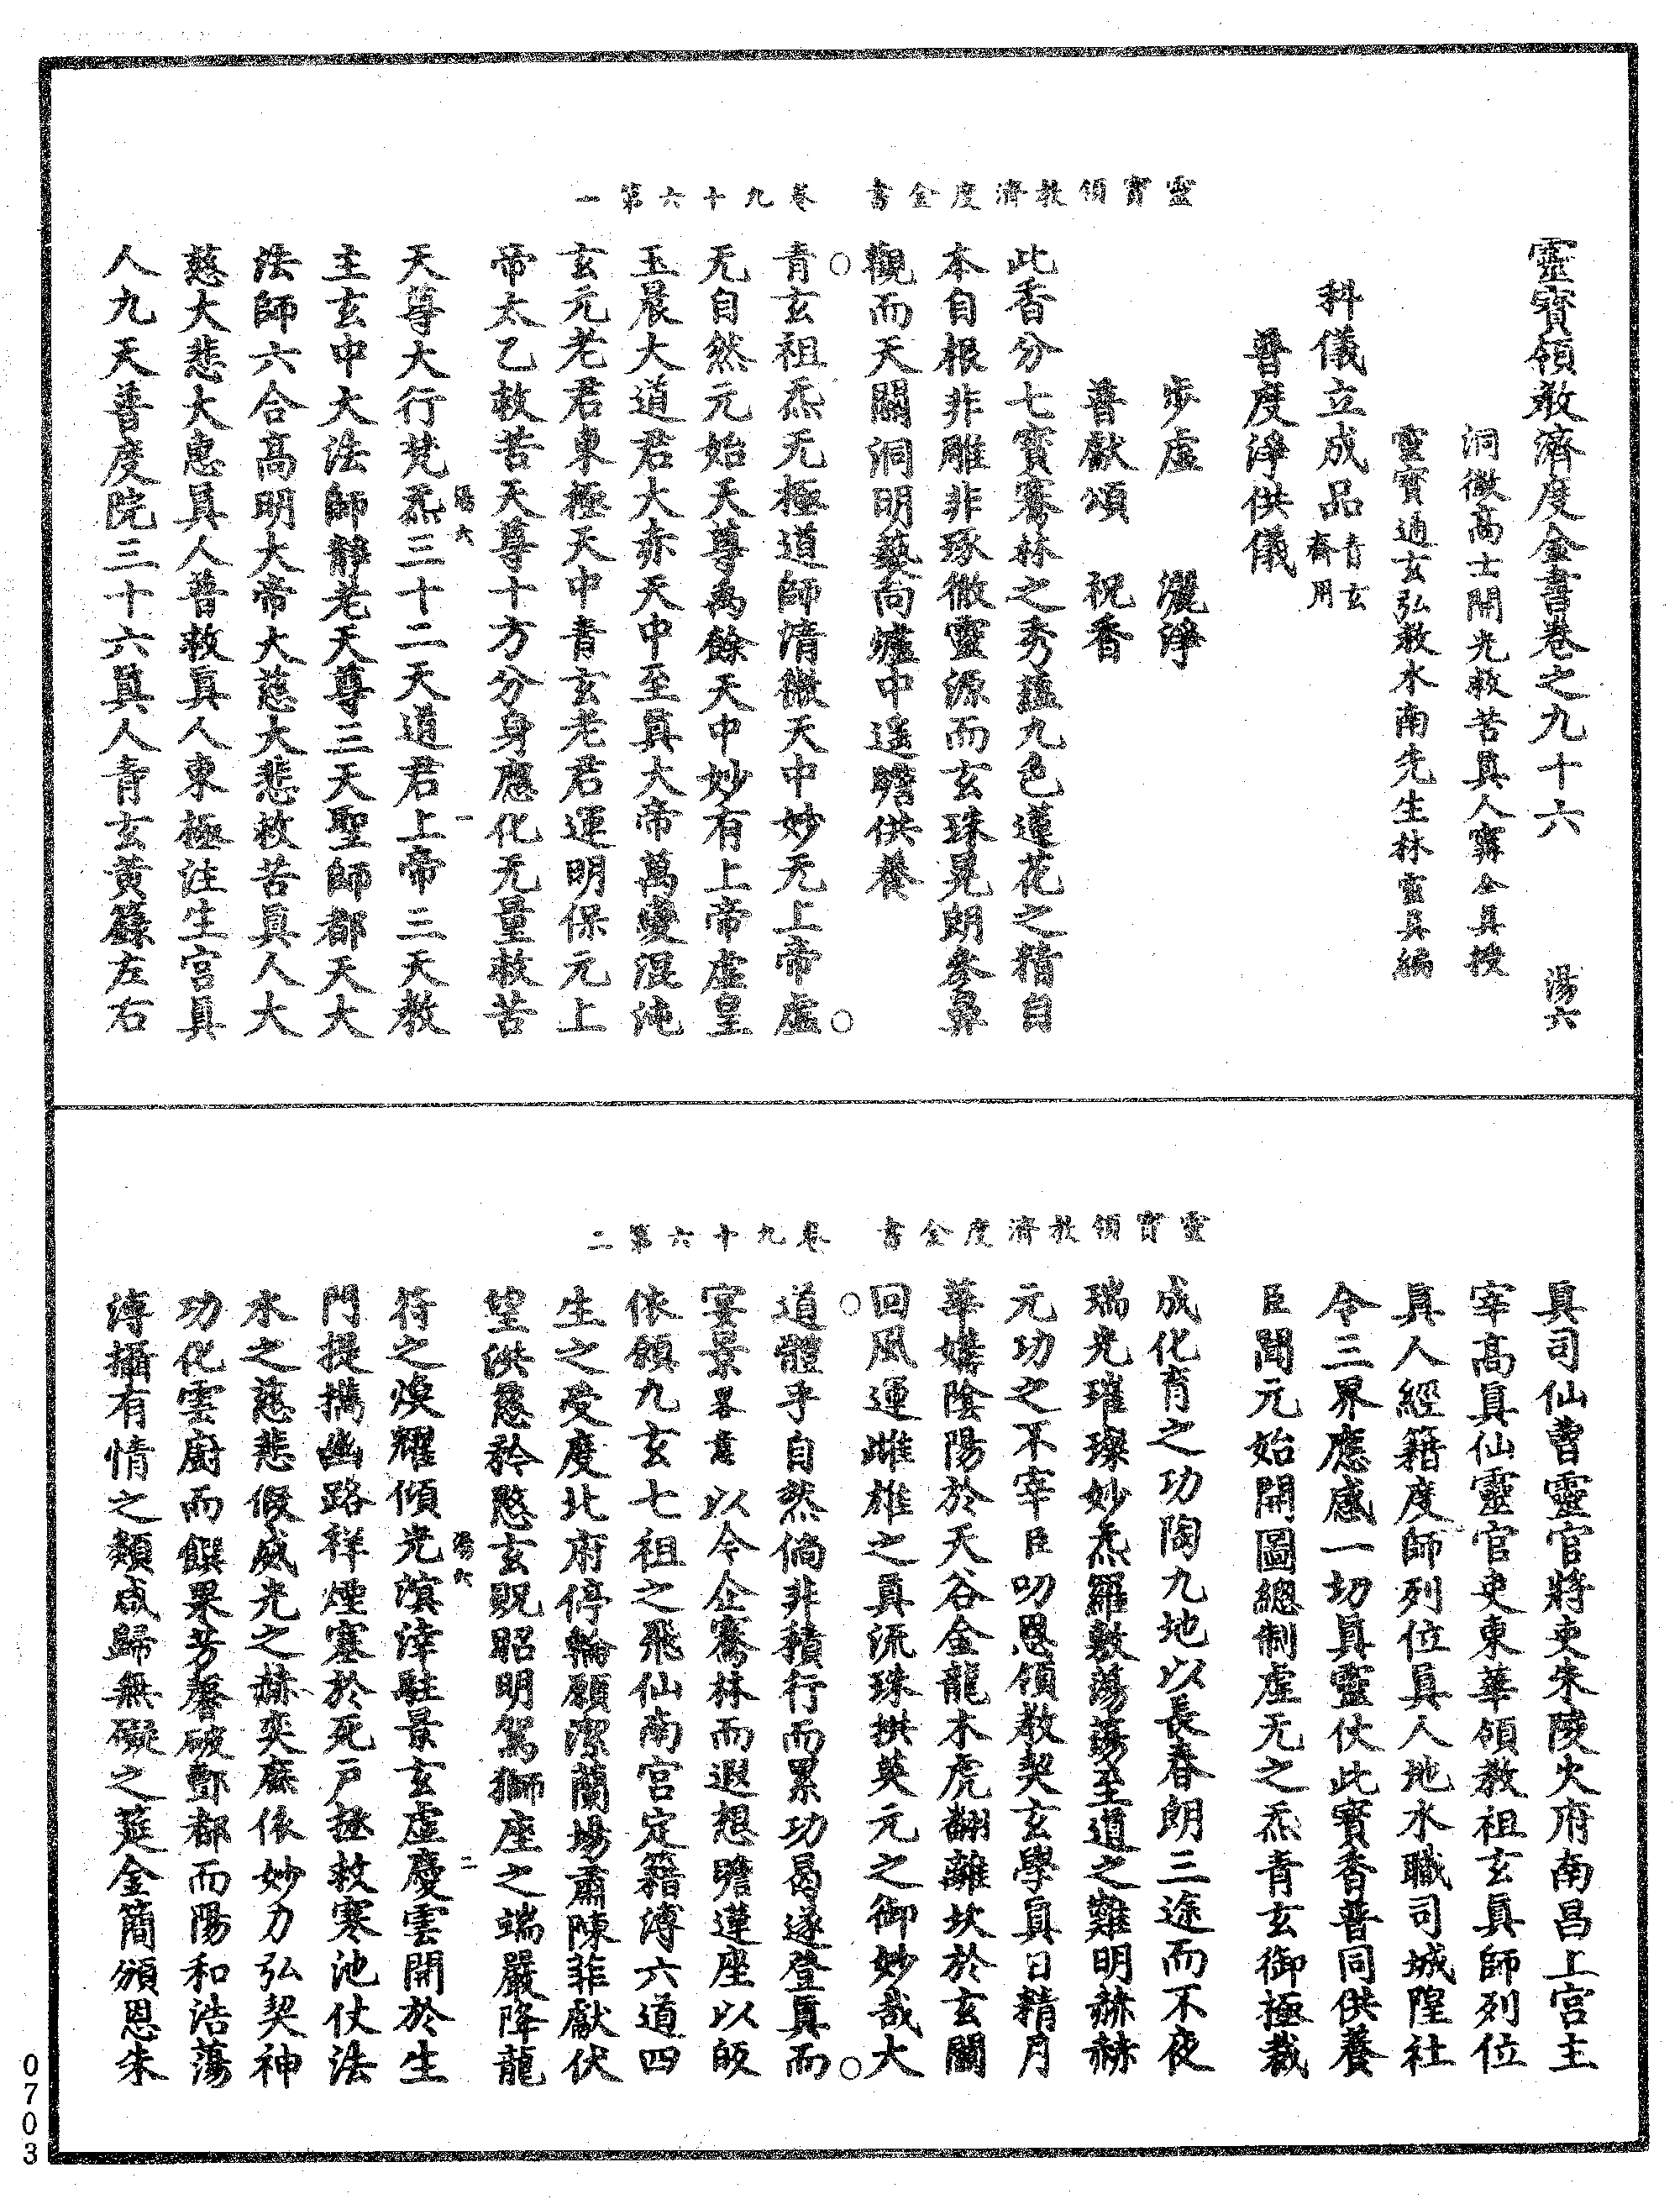 靈寶領教濟度金書　卷九十六第一
靈寶領教濟度金書卷之九十六　湯六
洞微高士開光救苦眞人甯全眞授
靈寶通玄弘教水南先生林靈眞編
科儀立成品青玄齋用
普度淨供儀
步虛　灑淨
普獻頌　祝香
此香分七寶騫林之秀蘊九色蓮花之精自
本自根非雕非琢徹靈源而玄珠晃朗參鼻
觀而天關洞明爇向爐中遙瞻供養
○　○
青玄祖炁无極道師清微天中妙无上帝虛
无自然元始天尊禹餘天中妙有上帝虛皇
玉晨大道君大赤天中至眞大帝萬變混沌
玄元老君東極天中青玄老君運明保元上
帝太乙救苦天尊十方分身應化无量救苦
湯六　一
天尊大行梵炁三十二天道君上帝三天教
主玄中大法師靜老天尊三天聖師都天大
法師六合高明大帝大慈大悲救苦眞人大
慈大悲大惠眞人普救眞人東極注生宮眞
人九天普度院三十六眞人青玄黃籙左右
靈寶領教濟度金書　卷九十六第二
眞司仙曹靈官將吏朱陵火府南昌上宮主
宰高眞仙靈官吏東華領教祖玄眞師列位
眞人經籍度師列位眞人地水職司城隍社
令三界應感一切眞靈仗此寶香普同供養
臣聞元始開圖總制虛无之炁青玄御極裁
成化育之功陶九地以長春朗三途而不夜
瑞光璀璨妙炁羅敷蕩蕩至道之難明赫赫
元功之不宰臣叨恩領教契玄學眞日精月
華媾陰陽於天谷金龍木虎翻離坎於玄關
回風運雌雄之眞流珠拱英元之御妙哉大
○　○
道體乎自然倘非積行而累功曷遂登眞而
宴景畧意以今企騫林而遐想瞻蓮座以皈
依領九玄七祖之飛仙南宮定籍溥六道四
生之受度北府停輪願潔蘭場肅陳菲獻伏
望洪慈矜愍玄貺昭明駕獅座之端嚴降龍
湯六　二
符之煥耀傾光蔭滓駐景玄虛慶雲開於生
門提攜幽路祥煙塞於死戶拯救寒池仗法
水之慈悲假威光之赫奕庶依妙力弘契神
功化雲廚而饌果芳馨破酆都而陽和浩蕩
溥攝有情之類咸歸無礙之筵金簡頒恩朱
0703